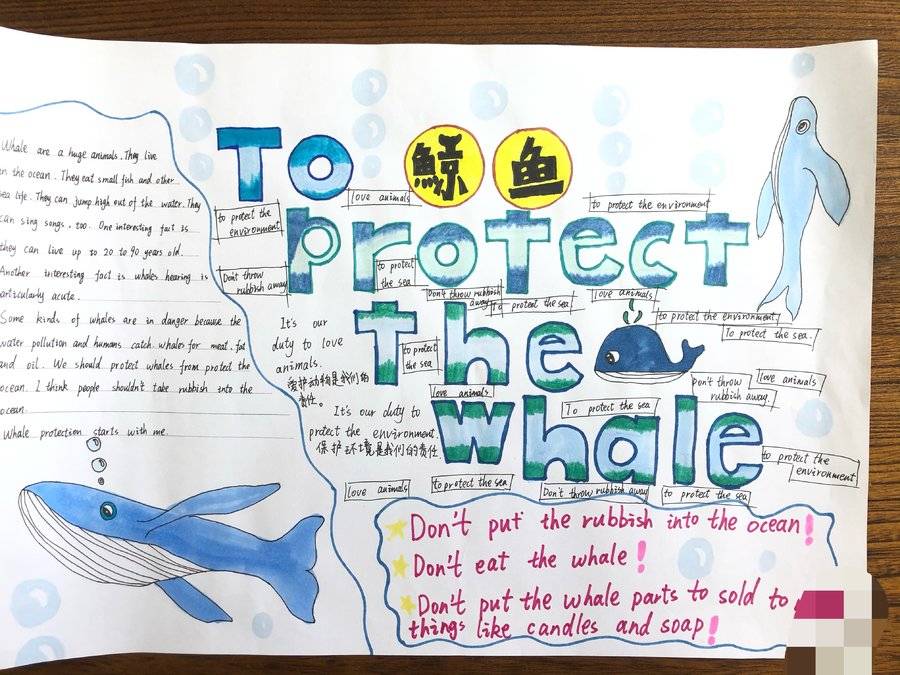 Whale are a huge animals. They live
in the ocean. They eat small fish and other
sea life. They can jump high out of the water. They
can sing songs, too. One interesting fact is
they can live up to 20 to 90 years old.
Another interesting fact is whales hearing is
articularly acute.
Some kinds of whales are in danger because the
water pollution and humans catch whales for meat. fat
and oil. We should protect whales from protect the
ocean. I think people shouldn't take rubbish into the
ocean
Whale protection starts with me.
To 鲸鱼
protect
The
whale
love animals
to protect the environment
to protect the
environment
Don't throw
rubbish away
to protect
the sea
Don't throw rubbish
away
To protect the sea
love animals
to protect the environment
To protect the sea.
It's our
duty to love
animals.
爱护动物是我们的
责任。
to protect
the sea
love animals
To protect the sea
Don't throw
rubbish away
love animals
It's our duty to
protect the environment.
保护环境是我们的责任
to protect the
environment
love animals
to protect the sea
Don't throw rubbish away
to protect the sea
Don't put the rubbish into the ocean!
Don't eat the whale!
Don't put the whale parts to sold to
things like candles and soap!